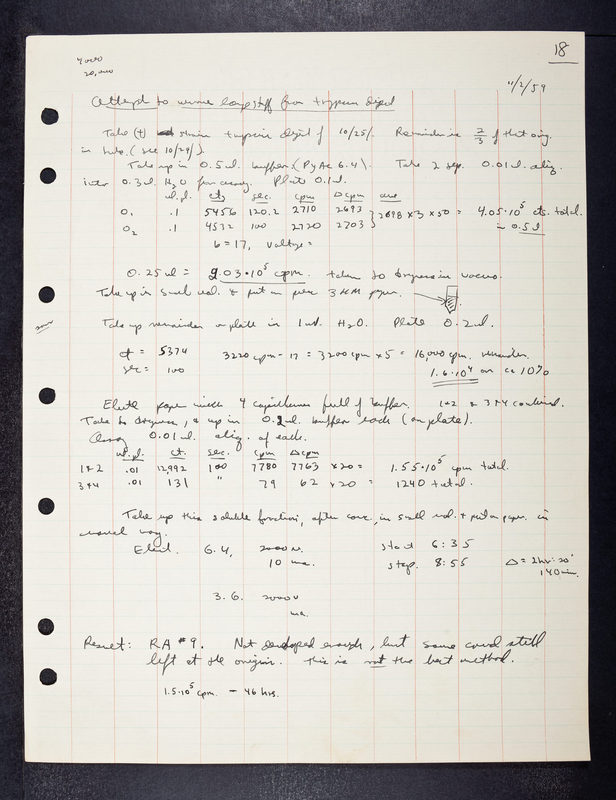 18
4000
20,000
11/2/59
Attempt to remove large stuff from trypsin digest
Take (+) strain trypsin digest of 10/25/. Remainder is 2/3 of that orig.
in tube. (see 10/29/).
Take up in 0.5 ml. buffer. (PyAc 6.4). Take 2 sep. 0.01 ml. aliq.
into 0.3 ml. H2O for assay. Plate 0.1 ml.
ml. pl. cts sec. cpm Δcpm ave
O1 .1 5456 120.2 2710 2693 } 2698 × 3 × 50 = 4.05·10^5 cts. total.
O2 .1 4532 100 2720 2703 in 0.5 ml
b = 17, Voltage =
0.25 ml = 2.03·10^5 cpm. taken to dryness in vacuo.
Take up in small vol. + put on 3 MM paper.
Take up remainder on plate in 1 ml. H2O. Plate 0.2 ml.
ct = 5374 3220 cpm - 17 = 3200 cpm × 5 = 16,000 cpm. remainder.
sec = 100 1.6·10^4 or ca 10%
Elute paper with 4 capillaries full of buffer. 1+2 & 3+4 combined.
Take to dryness, & up in 0.2 ml. buffer each (on plate).
Assay 0.01 ml. aliq. of each.
ml. pl. ct. sec. cpm Δcpm
1+2 .01 12,992 100 7780 7763 × 20 = 1.55·10^5 cpm total.
3+4 .01 131 " 79 62 × 20 = 1240 total.
Take up this soluble fraction, after conc., in small vol. + put on paper in
usual way.
Elect. 6.4, 2000 v. start 6:35
10 ma. stop. 8:55 Δ = 2hr:20'
140 min.
3.6. 2000 v
ma.
Result: RA #9. Not developed enough, but some could still
left at the origin. This is not the best method.
1.5·10^5 cpm. - 46 hrs.